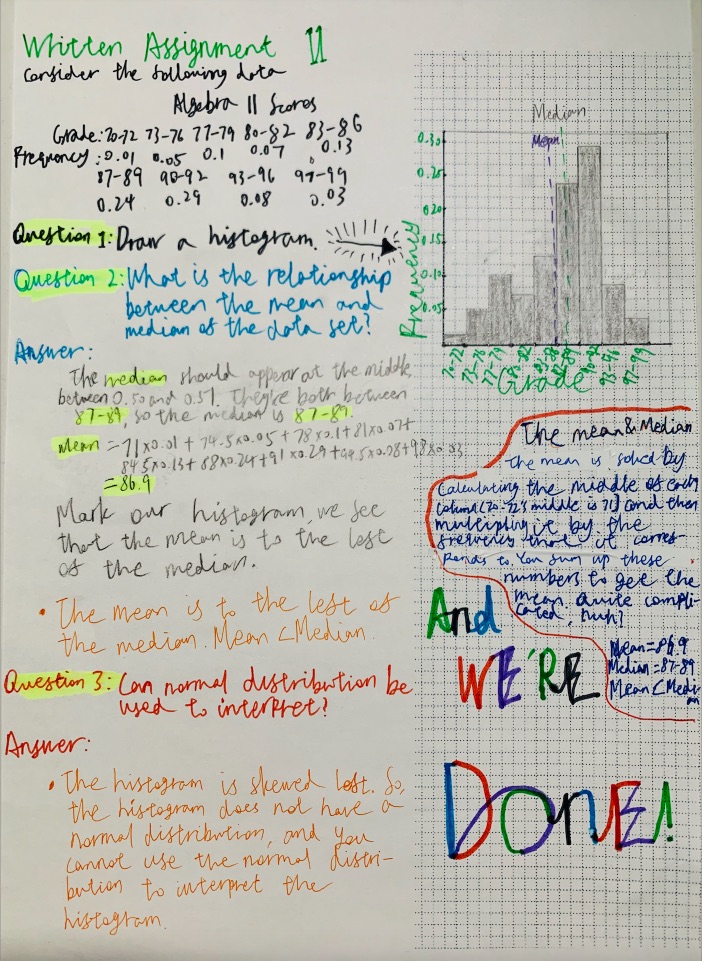 Written Assignment 11
Consider the following data
Algebra II Scores
Grade: 70-72 73-76 77-79 80-82 83-86
Frequency: 0.01 0.05 0.1 0.07 0.13
87-89 90-92 93-96 97-99
0.24 0.29 0.08 0.03
Question 1: Draw a histogram.
Question 2: What is the relationship
between the mean and
median of the data set?
Answer:
The median should appear at the middle,
between 0.50 and 0.51. They're both between
87-89, so the median is 87-89.
Mean = 71×0.01 + 74.5×0.05 + 78×0.1 + 81×0.07+
84.5×0.13+ 88×0.24+91×0.29+94.5×0.08+98×0.03
= 86.9
Mark our histogram, we see
that the mean is to the left
of the median.
• The mean is to the left of
the median. Mean < Median.
Question 3: Can normal distribution be
used to interpret?
Answer:
• The histogram is skewed left. So,
the histogram does not have a
normal distribution, and you
cannot use the normal distri-
bution to interpret the
histogram.
Median
Mean
0.30
0.25
0.20
0.15
0.10
0.05
Frequency
70-72
73-76
77-79
80-82
83-86
87-89
90-92
93-96
97-99
Grade
The mean & Median
The mean is solved by
Calculating the middle of each
column (70-72's middle is 71) and then
multiplying it by the
frequency that it corres-
ponds to. You sum up these
numbers to get the
mean. Quite compli-
cated, huh?
Mean = 86.9
Median = 87-89
Mean < Medi-
an
And
WE'RE
DONE!